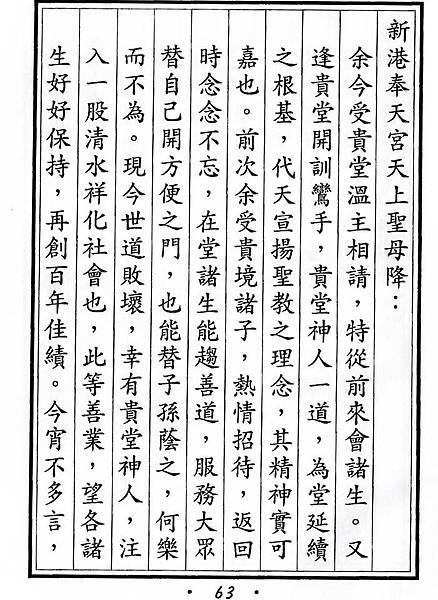 新港奉天宮天上聖母降：
余今受貴堂溫主相請，特從前來會諸生。又
逢貴堂開訓鸞手，貴堂神人一道，為堂延續
之根基，代天宣揚聖教之理念，其精神實可
嘉也。前次余受貴境諸子，熱情招待，返回
時念念不忘，在堂諸生能趨善道，服務大眾
替自己開方便之門，也能替子孫蔭之，何樂
而不為。現今世道敗壞，幸有貴堂神人，注
入一股清水祥化社會也，此等善業，望各諸
生好好保持，再創百年佳績。今宵不多言，
· 63 ·